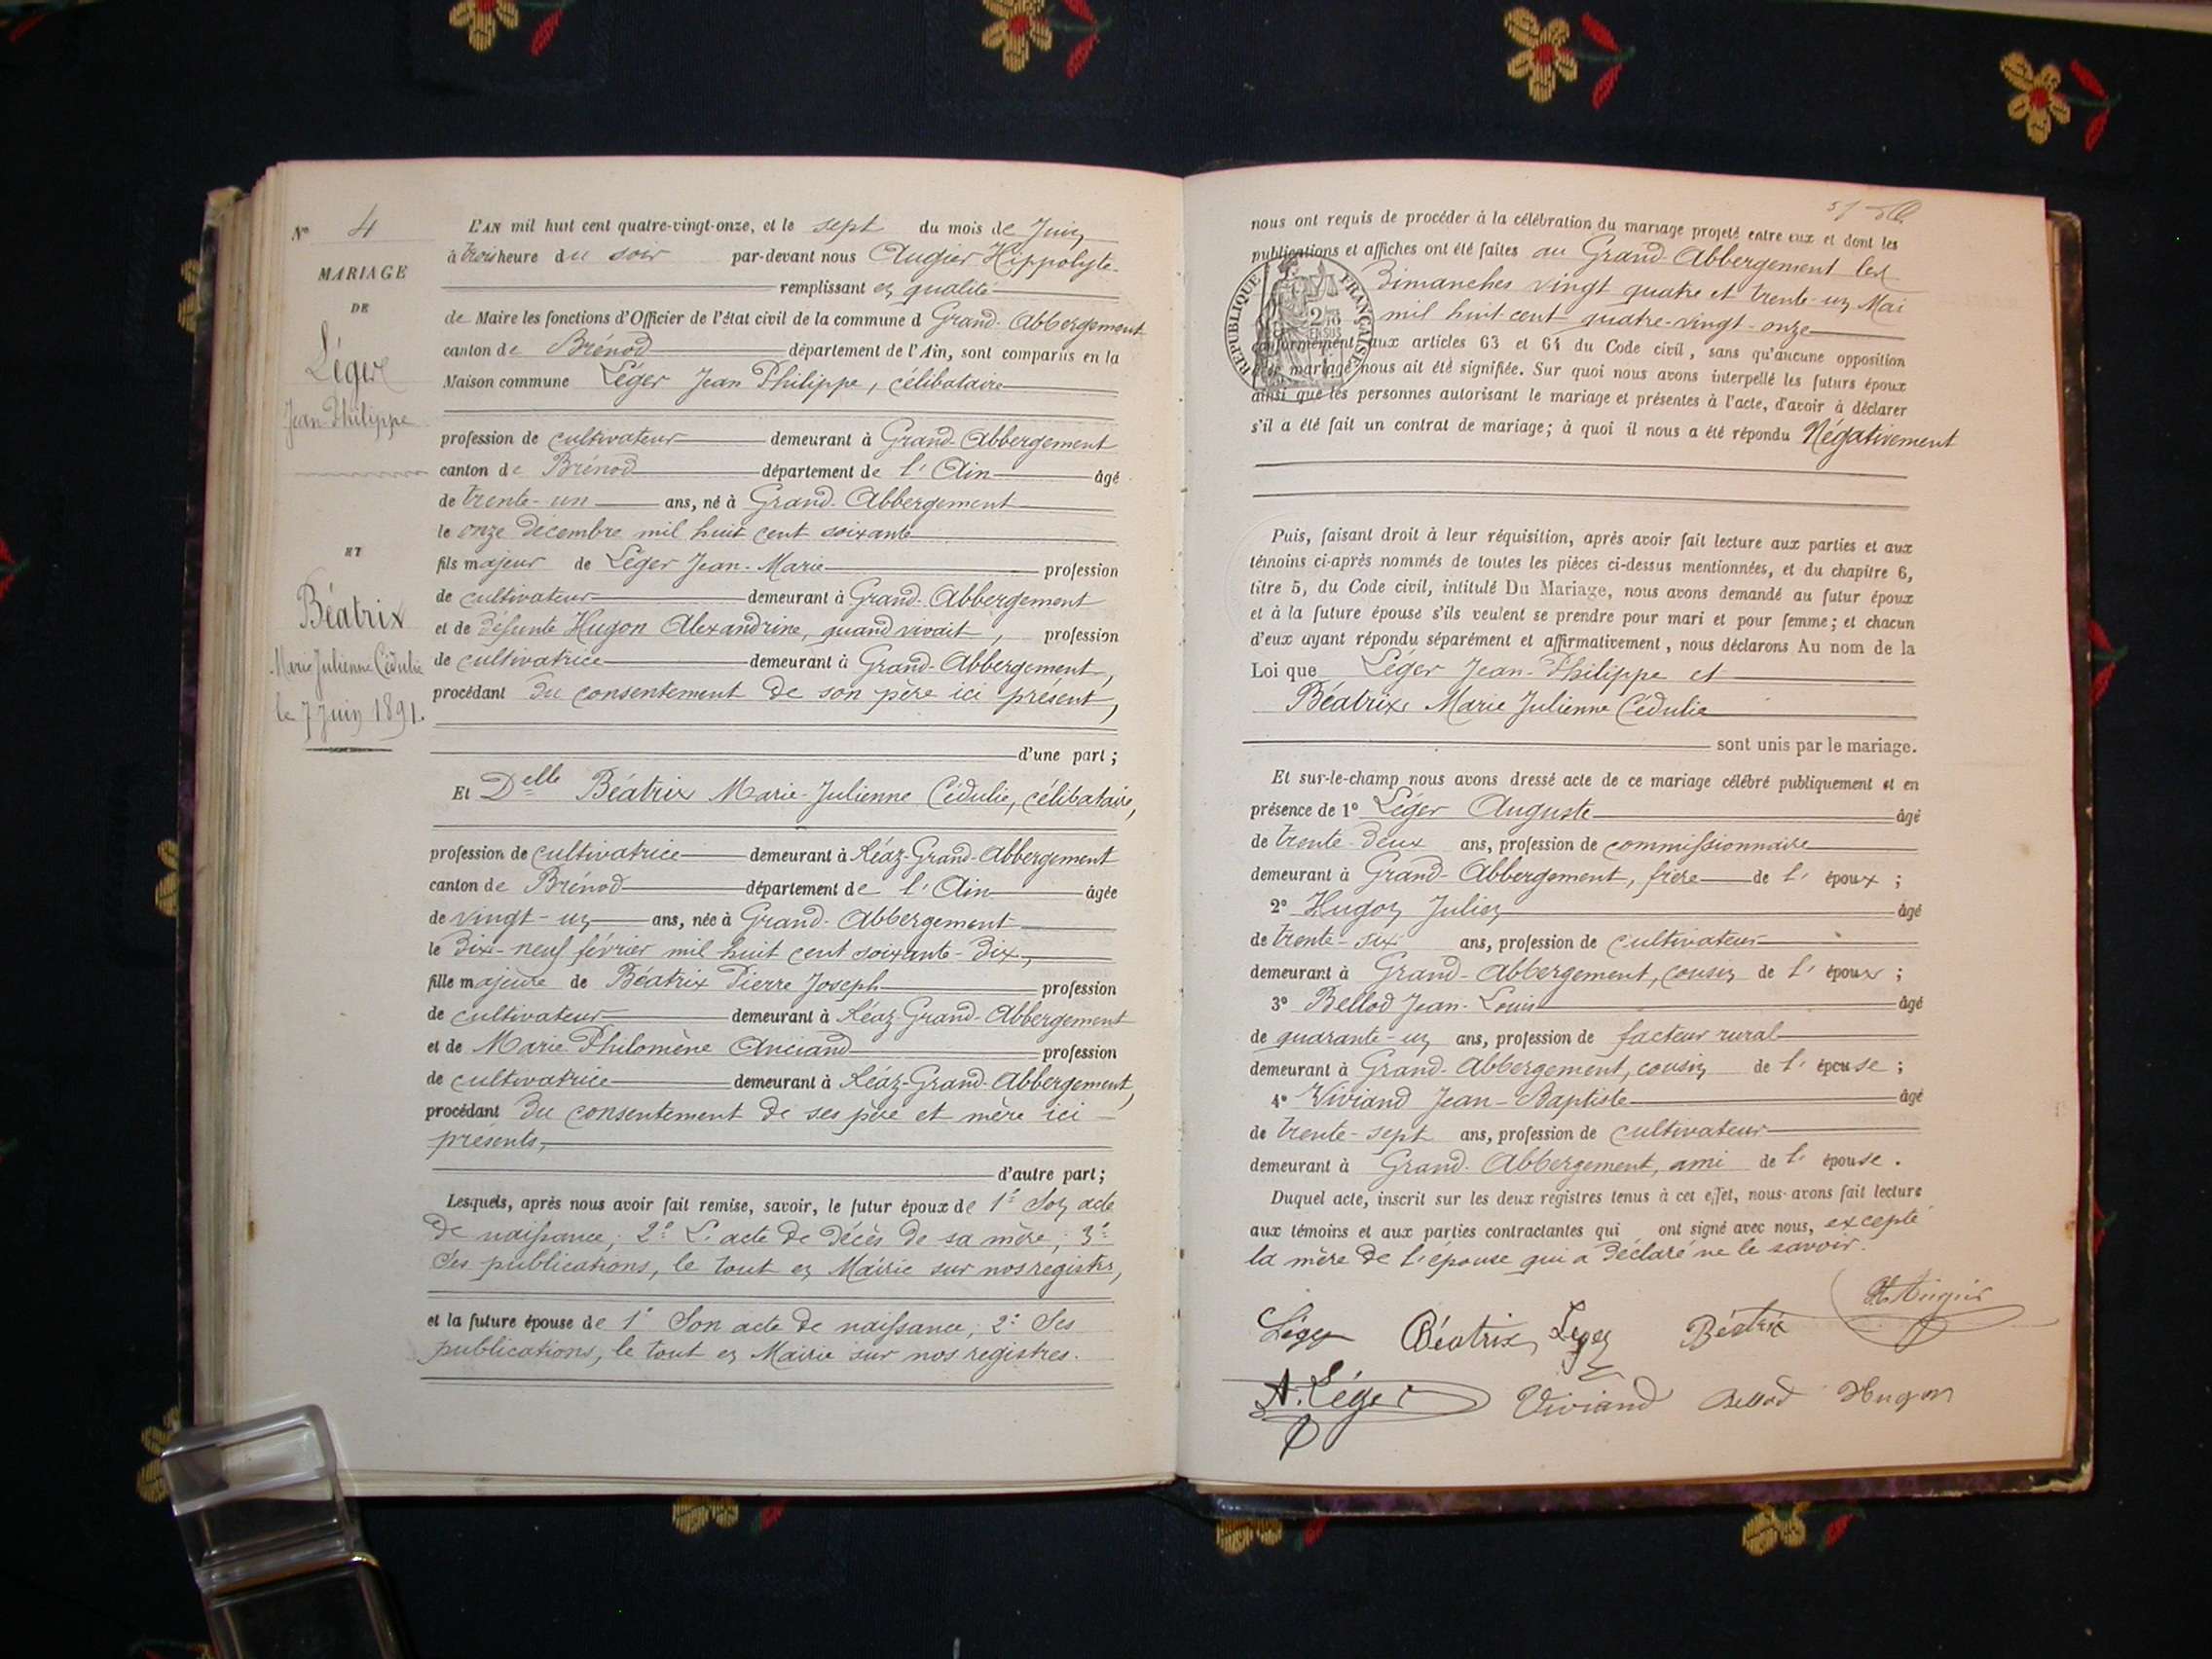 Nº 4
MARIAGE
DE
Léger
Jean Philippe
ET
Béatrix
Marie Julienne Cédulie
le 7 Juin 1891.
L'AN mil huit cent quatre-vingt-onze, et le sept du mois de Juin
à trois heure du soir par-devant nous Augier Hippolyte
remplissant en qualité
de Maire les fonctions d'Officier de l'état civil de la commune d Grand-Abbergement
canton de Brénod département de l'Ain, sont comparus en la
Maison commune Léger Jean Philippe, célibataire
profession de cultivateur demeurant à Grand-Abbergement
canton de Brénod département de l'Ain âgé
de trente-un ans, né à Grand-Abbergement
le onze décembre mil huit cent soixante
fils majeur de Léger Jean-Marie profession
de cultivateur demeurant à Grand-Abbergement
et de défunte Hugon Alexandrine, quand vivait, profession
de cultivatrice demeurant à Grand-Abbergement,
procédant du consentement de son père ici présent,
d'une part;
Et Delle Béatrix Marie-Julienne Cédulie, célibataire,
profession de cultivatrice demeurant à Léaz-Grand-Abbergement
canton de Brénod département de l'Ain âgée
de vingt-un ans, née à Grand-Abbergement
le dix-neuf février mil huit cent soixante-dix,
fille majeure de Béatrix Pierre Joseph profession
de cultivateur demeurant à Léaz-Grand-Abbergement
et de Marie Philomène Anciand profession
de cultivatrice demeurant à Léaz-Grand-Abbergement,
procédant du consentement de ses père et mère ici
présents,
d'autre part;
Lesquels, après nous avoir fait remise, savoir, le futur époux de 1º Son acte
de naissance; 2º L'acte de décès de sa mère; 3º
Ses publications, le tout en Mairie sur nos registres,
et la future épouse de 1º Son acte de naissance; 2º Ses
publications, le tout en Mairie sur nos registres.
nous ont requis de procéder à la célébration du mariage projeté entre eux et dont les
publications et affiches ont été faites au Grand-Abbergement les
Dimanches vingt quatre et trente-un Mai
mil huit cent quatre-vingt-onze
RÉPUBLIQUE FRANÇAISE
2/10 EN SUS
conformément aux articles 63 et 64 du Code civil, sans qu'aucune opposition
mariage nous ait été signifiée. Sur quoi nous avons interpellé les futurs époux
ainsi que les personnes autorisant le mariage et présentes à l'acte, d'avoir à déclarer
s'il a été fait un contrat de mariage; à quoi il nous a été répondu Négativement
Puis, faisant droit à leur réquisition, après avoir fait lecture aux parties et aux
témoins ci-après nommés de toutes les pièces ci-dessus mentionnées, et du chapitre 6,
titre 5, du Code civil, intitulé Du Mariage, nous avons demandé au futur époux
et à la future épouse s'ils veulent se prendre pour mari et pour femme; et chacun
d'eux ayant répondu séparément et affirmativement, nous déclarons Au nom de la
Loi que Léger Jean-Philippe et
Béatrix Marie Julienne Cédulie
sont unis par le mariage.
Et sur-le-champ nous avons dressé acte de ce mariage célébré publiquement et en
présence de 1º Léger Auguste âgé
de trente-deux ans, profession de commissionnaire
demeurant à Grand-Abbergement, frère de l'époux;
2º Hugon Julien âgé
de trente-six ans, profession de cultivateur
demeurant à Grand-Abbergement, cousin de l'époux;
3º Bellod Jean-Louis âgé
de quarante-un ans, profession de facteur rural
demeurant à Grand-Abbergement, cousin de l'épouse;
4º Viviand Jean-Baptiste âgé
de trente-sept ans, profession de cultivateur
demeurant à Grand-Abbergement, ami de l'épouse.
Duquel acte, inscrit sur les deux registres tenus à cet effet, nous avons fait lecture
aux témoins et aux parties contractantes qui ont signé avec nous, excepté
la mère de l'épouse qui a déclaré ne le savoir.
Hte Augier
Léger Béatrix Leger Béatrix
A. Léger Viviand Bellod Hugon